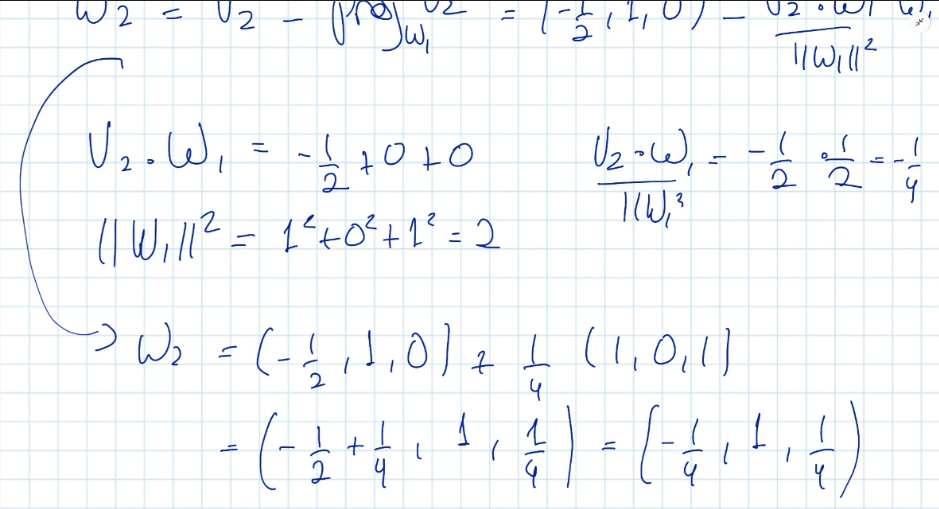 W₂ = U₂ - proj_W₁ U₂ = (-1/2, 1, 0) - U₂·W₁/||W₁||² W₁
U₂·W₁ = -1/2 + 0 + 0    U₂·W₁/||W₁² = -1/2 · 1/2 = -1/4
||W₁||² = 1² + 0² + 1² = 2
→ W₂ = (-1/2, 1, 0) + 1/4 (1, 0, 1)
= (-1/2 + 1/4, 1, 1/4) = (-1/4, 1, 1/4)